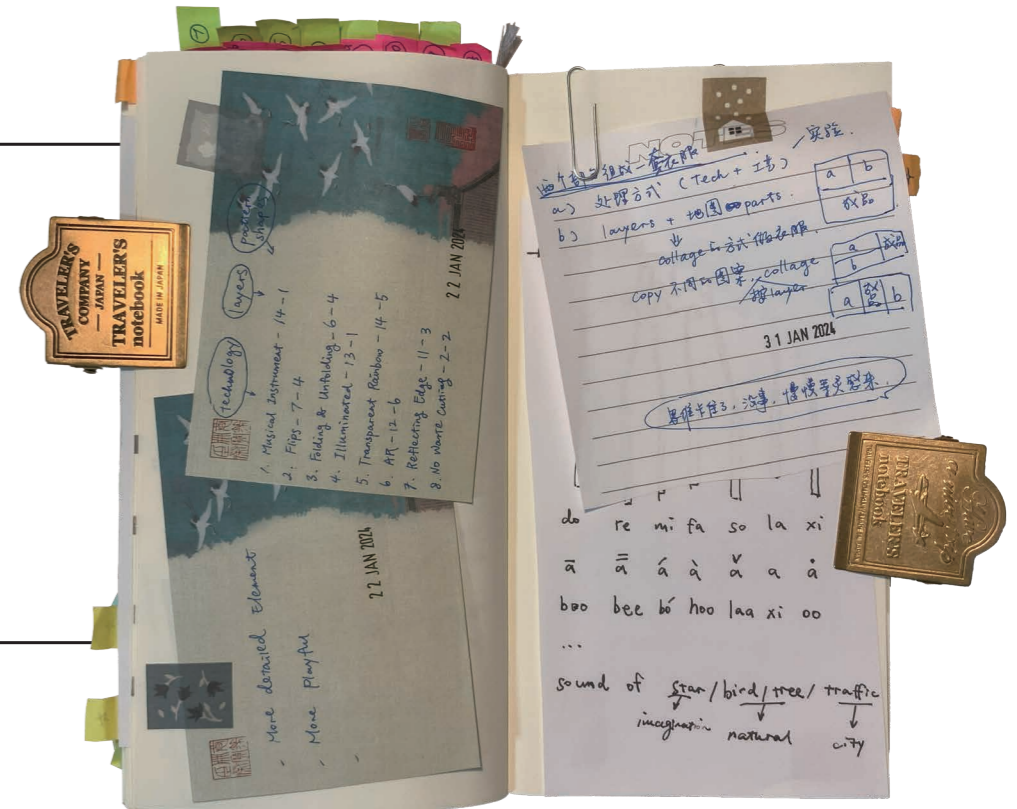 TRAVELER'S
COMPANY
JAPAN
TRAVELER'S
notebook
MADE IN JAPAN
technology
layers
pattern
shapes
1. Musical Instrument - 14 - 1
2. Flips - 7 - 4
3. Folding & Unfolding - 6 - 4
4. Illuminated - 13 - 1
5. Transparent Rainbow - 14 - 5
6. AR - 12 - 6
7. Reflecting Edge - 11 - 3
8. No Waste Cutting - 2 - 2
22 JAN 2024
- More detailed Element
- More Playful
-
22 JAN 2024
NOTES
组成一套衣服
/实验.
a) 处理方式 (Tech + 工艺)
b) layers + 地图 parts.
collage的方式做衣服.
copy 不同的图案, collage
按layer
a b
成品
a 成品
b
a 成品 b
31 JAN 2024
思维卡住了, 没事, 慢慢等灵感来.
do re mi fa so la xi
a̅ a̿ á à ǎ a å
boo bee bó hoo laa xi oo
...
sound of star / bird / tree / traffic
imagination
natural
city
TRAVELER'S
notebook